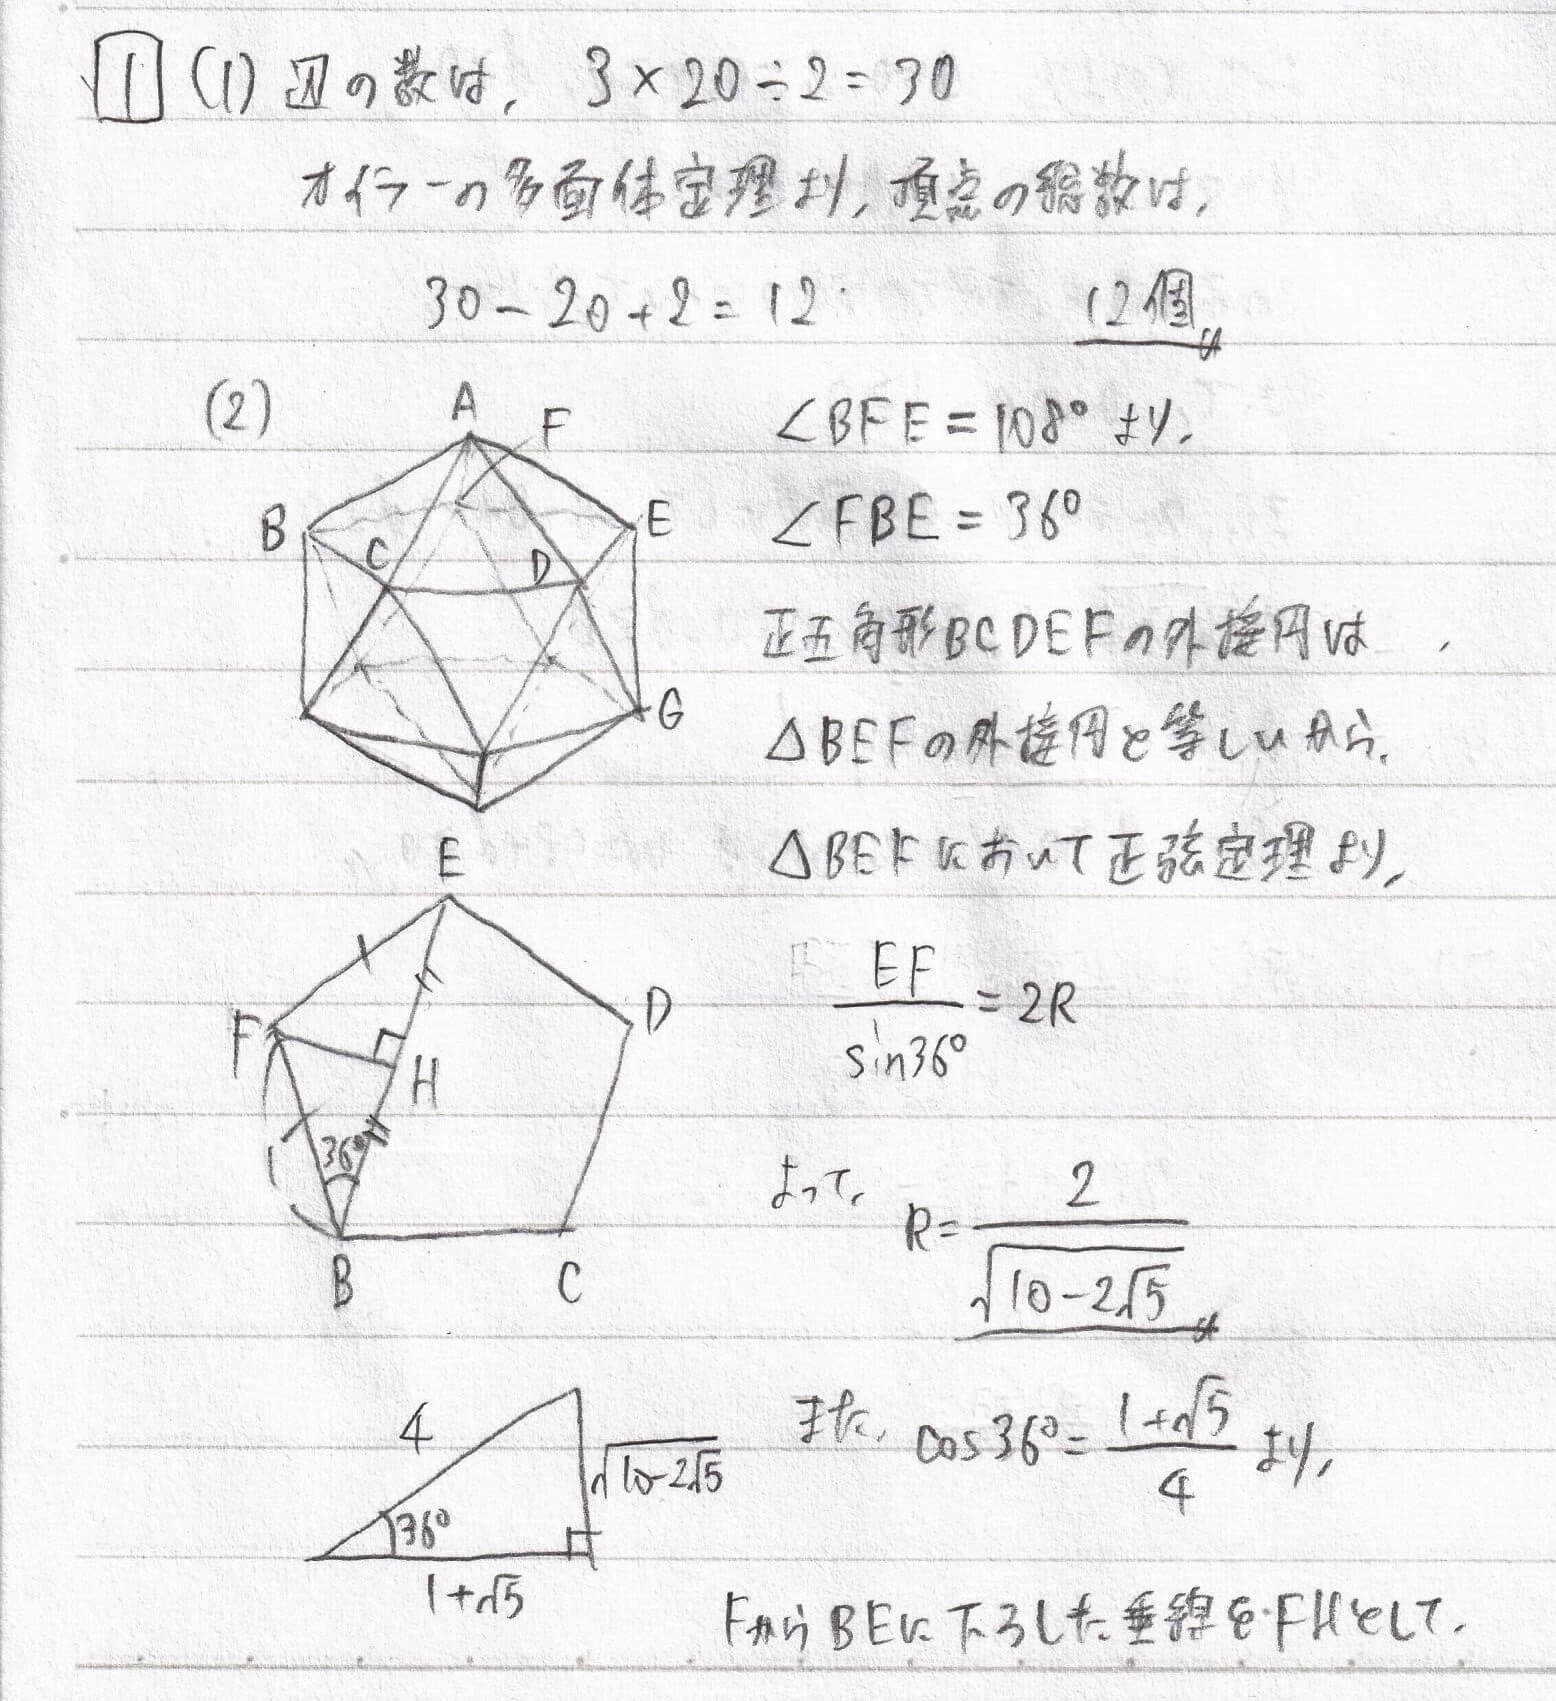 1 (1) 辺の数は, 3×20÷2=30
オイラーの多面体定理より, 頂点の総数は,
30-20+2=12 12個
(2)
A
F
B
C
D
E
G
∠BFE=108°より,
∠FBE=36°
正五角形BCDEFの外接円は
△BEFの外接円と等しいから,
△BEFにおいて正弦定理より,
EF/sin36°=2R
E
F
D
H
1
36°
B
C
よって, R=2/√(10-2√5)
4
√(10-2√5)
36°
1+√5
また, cos36°=(1+√5)/4 より,
FからBEに下ろした垂線をFHとして,